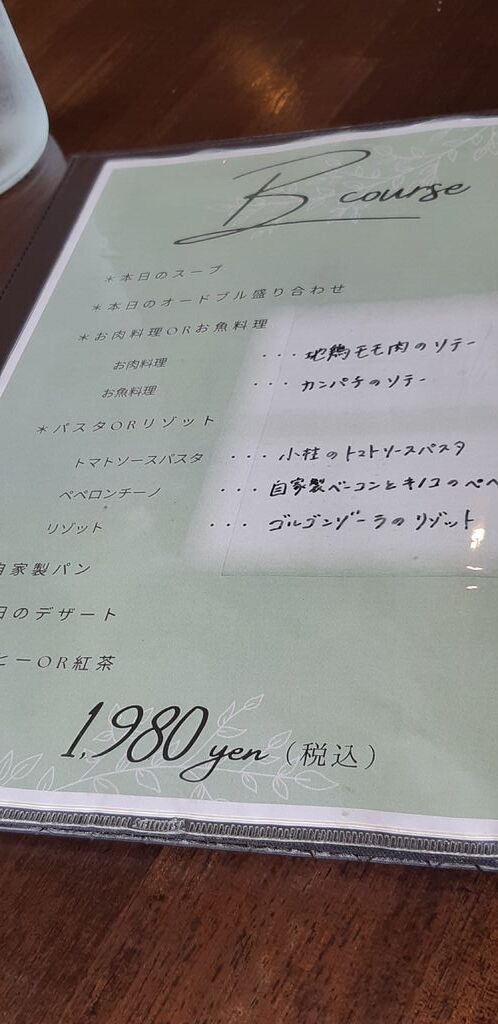 B course
*本日のスープ
*本日のオードブル盛り合わせ
*お肉料理ORお魚料理
お肉料理 ・・・地鶏モモ肉のソテー
お魚料理 ・・・カンパチのソテー
*パスタORリゾット
トマトソースパスタ ・・・小柱のトマトソースパスタ
ペペロンチーノ ・・・自家製ベーコンとキノコのペペ
リゾット ・・・ゴルゴンゾーラのリゾット
自家製パン
日のデザート
ヒーOR紅茶
1,980yen（税込）